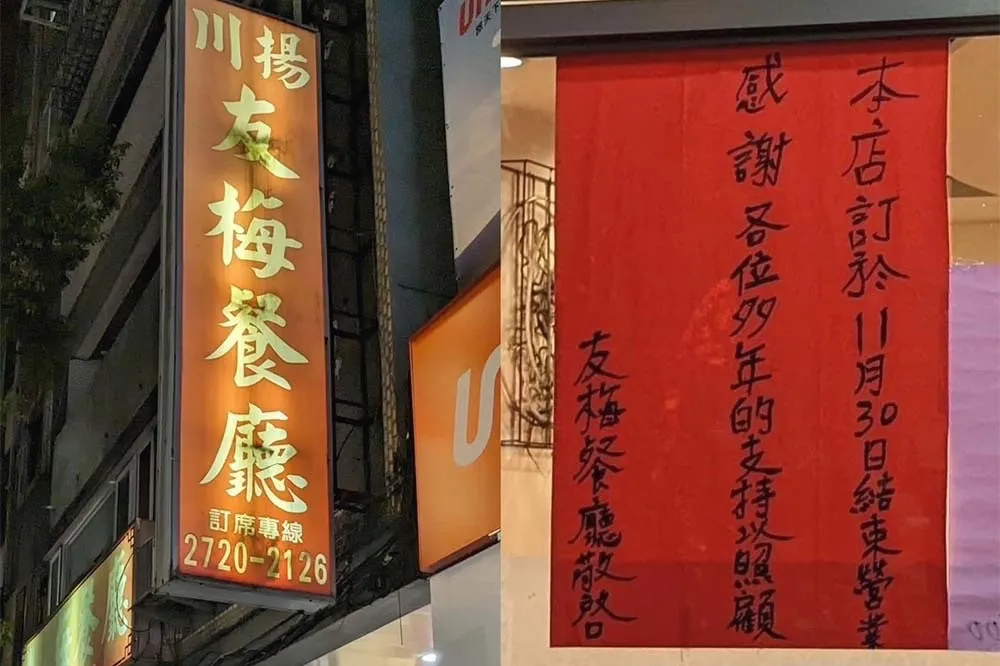 川揚
友梅餐廳
訂席專線
2720-2126
餐廳
本店訂於11月30日結束營業
感謝各位多年的支持以照顧
友梅餐廳敬啓